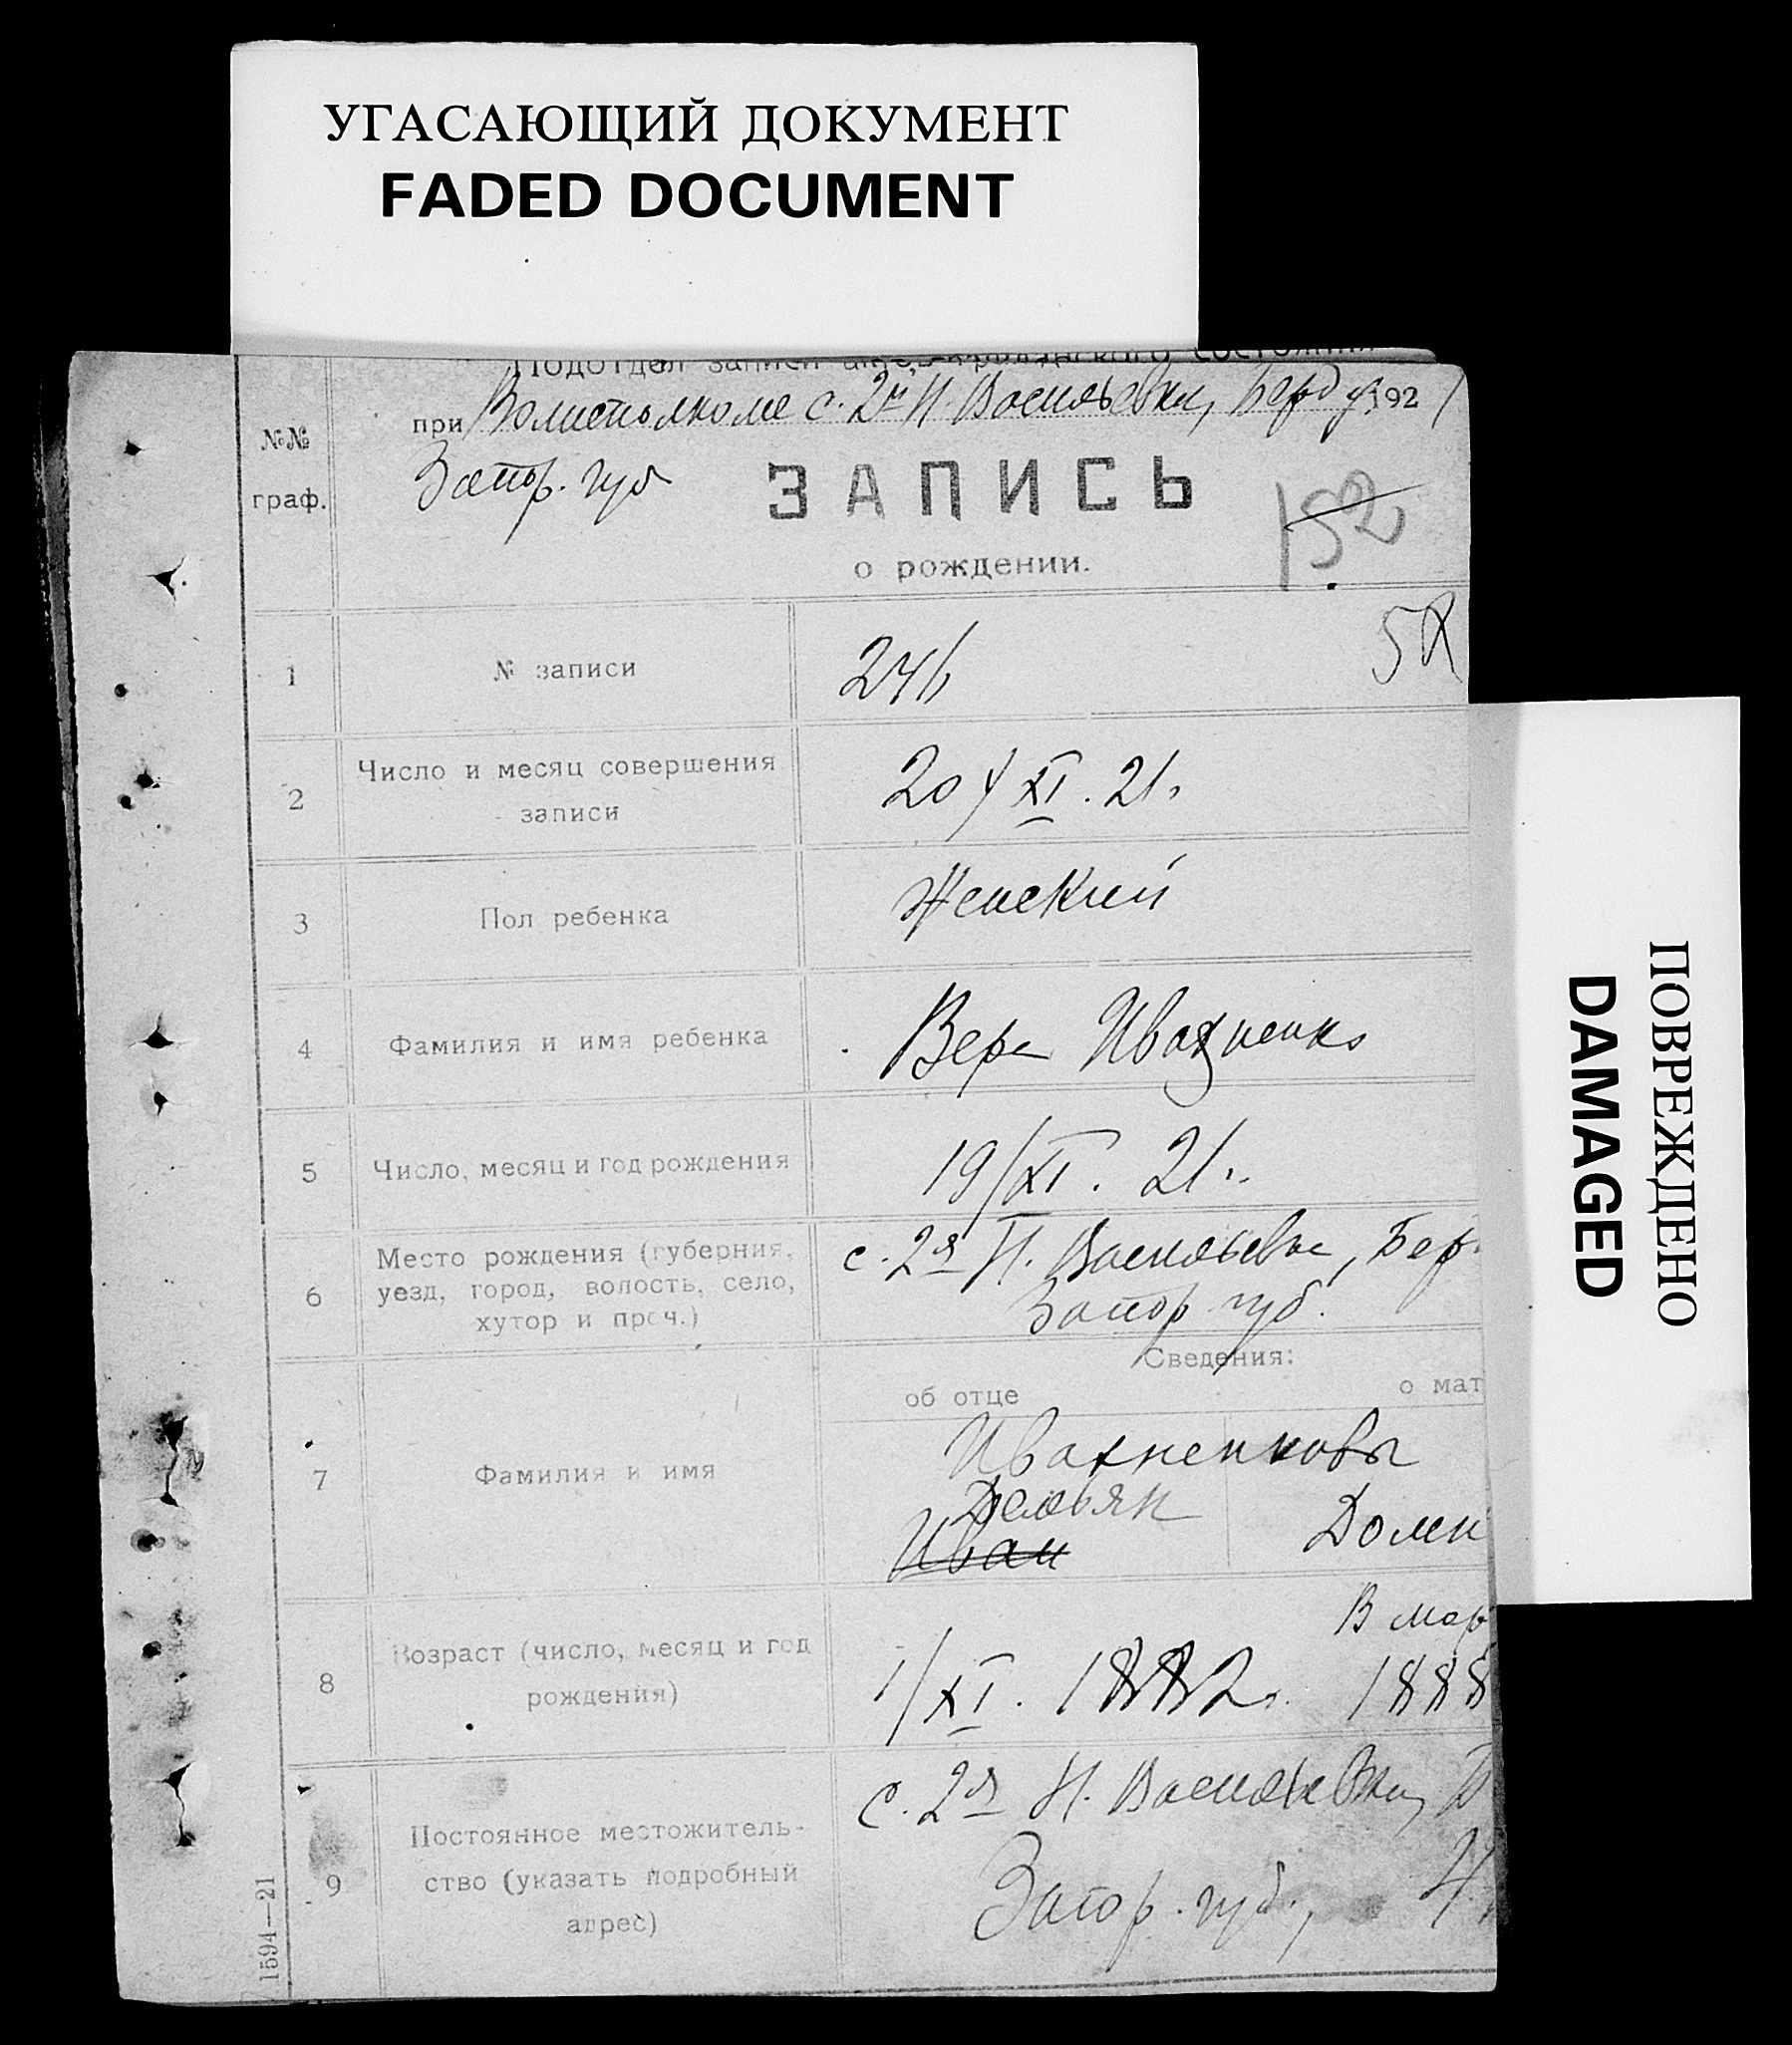 УГАСАЮЩИЙ ДОКУМЕНТ
FADED DOCUMENT
Подотдел записи актов гражданского состояния
при Волисполкоме с. 2й Н. Васильевки, Берд у. 1921
Запор. губ
№№
граф.
ЗАПИСЬ
о рождении.
152
1 № записи 246
2 Число и месяц совершения
записи
20/XI. 21.
3 Пол ребенка Женский
4 Фамилия и имя ребенка Вера Ивахненко
5 Число, месяц и год рождения 19/XI. 21.
6 Место рождения (губерния,
уезд, город, волость, село,
хутор и проч.)
с. 2я Н. Васильевка, Бер.
Запор губ.
Сведения:
об отце о мат
7 Фамилия и имя
Ивахненковы
Демьян
Иван
Домн
8 Возраст (число, месяц и год
рождения)
1/XI. 1882.
В мар
1888
9 Постоянное местожитель-
ство (указать подробный
адрес)
с. 2я Н. Васильевка, Б
Запор. губ.,
1594—21
ПОВРЕЖДЕНО
DAMAGED